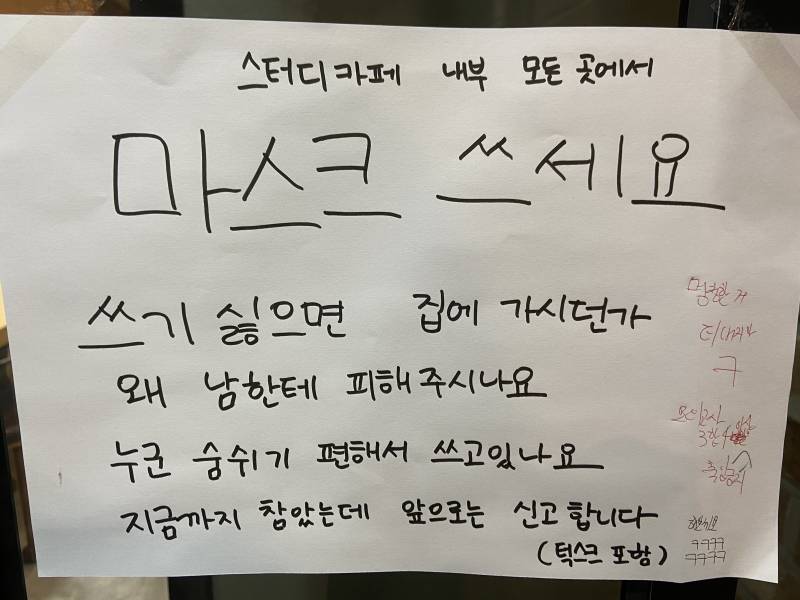 스터디카페 내부 모든 곳에서
마스크 쓰세요
쓰기 싫으면 집에 가시던가
왜 남한테 피해주시나요
누군 숨쉬기 편해서 쓰고있나요
지금까지 참았는데 앞으로는 신고합니다
(턱스크 포함)
ㅋㅋㅋㅋ
ㅋㅋㅋㅋ